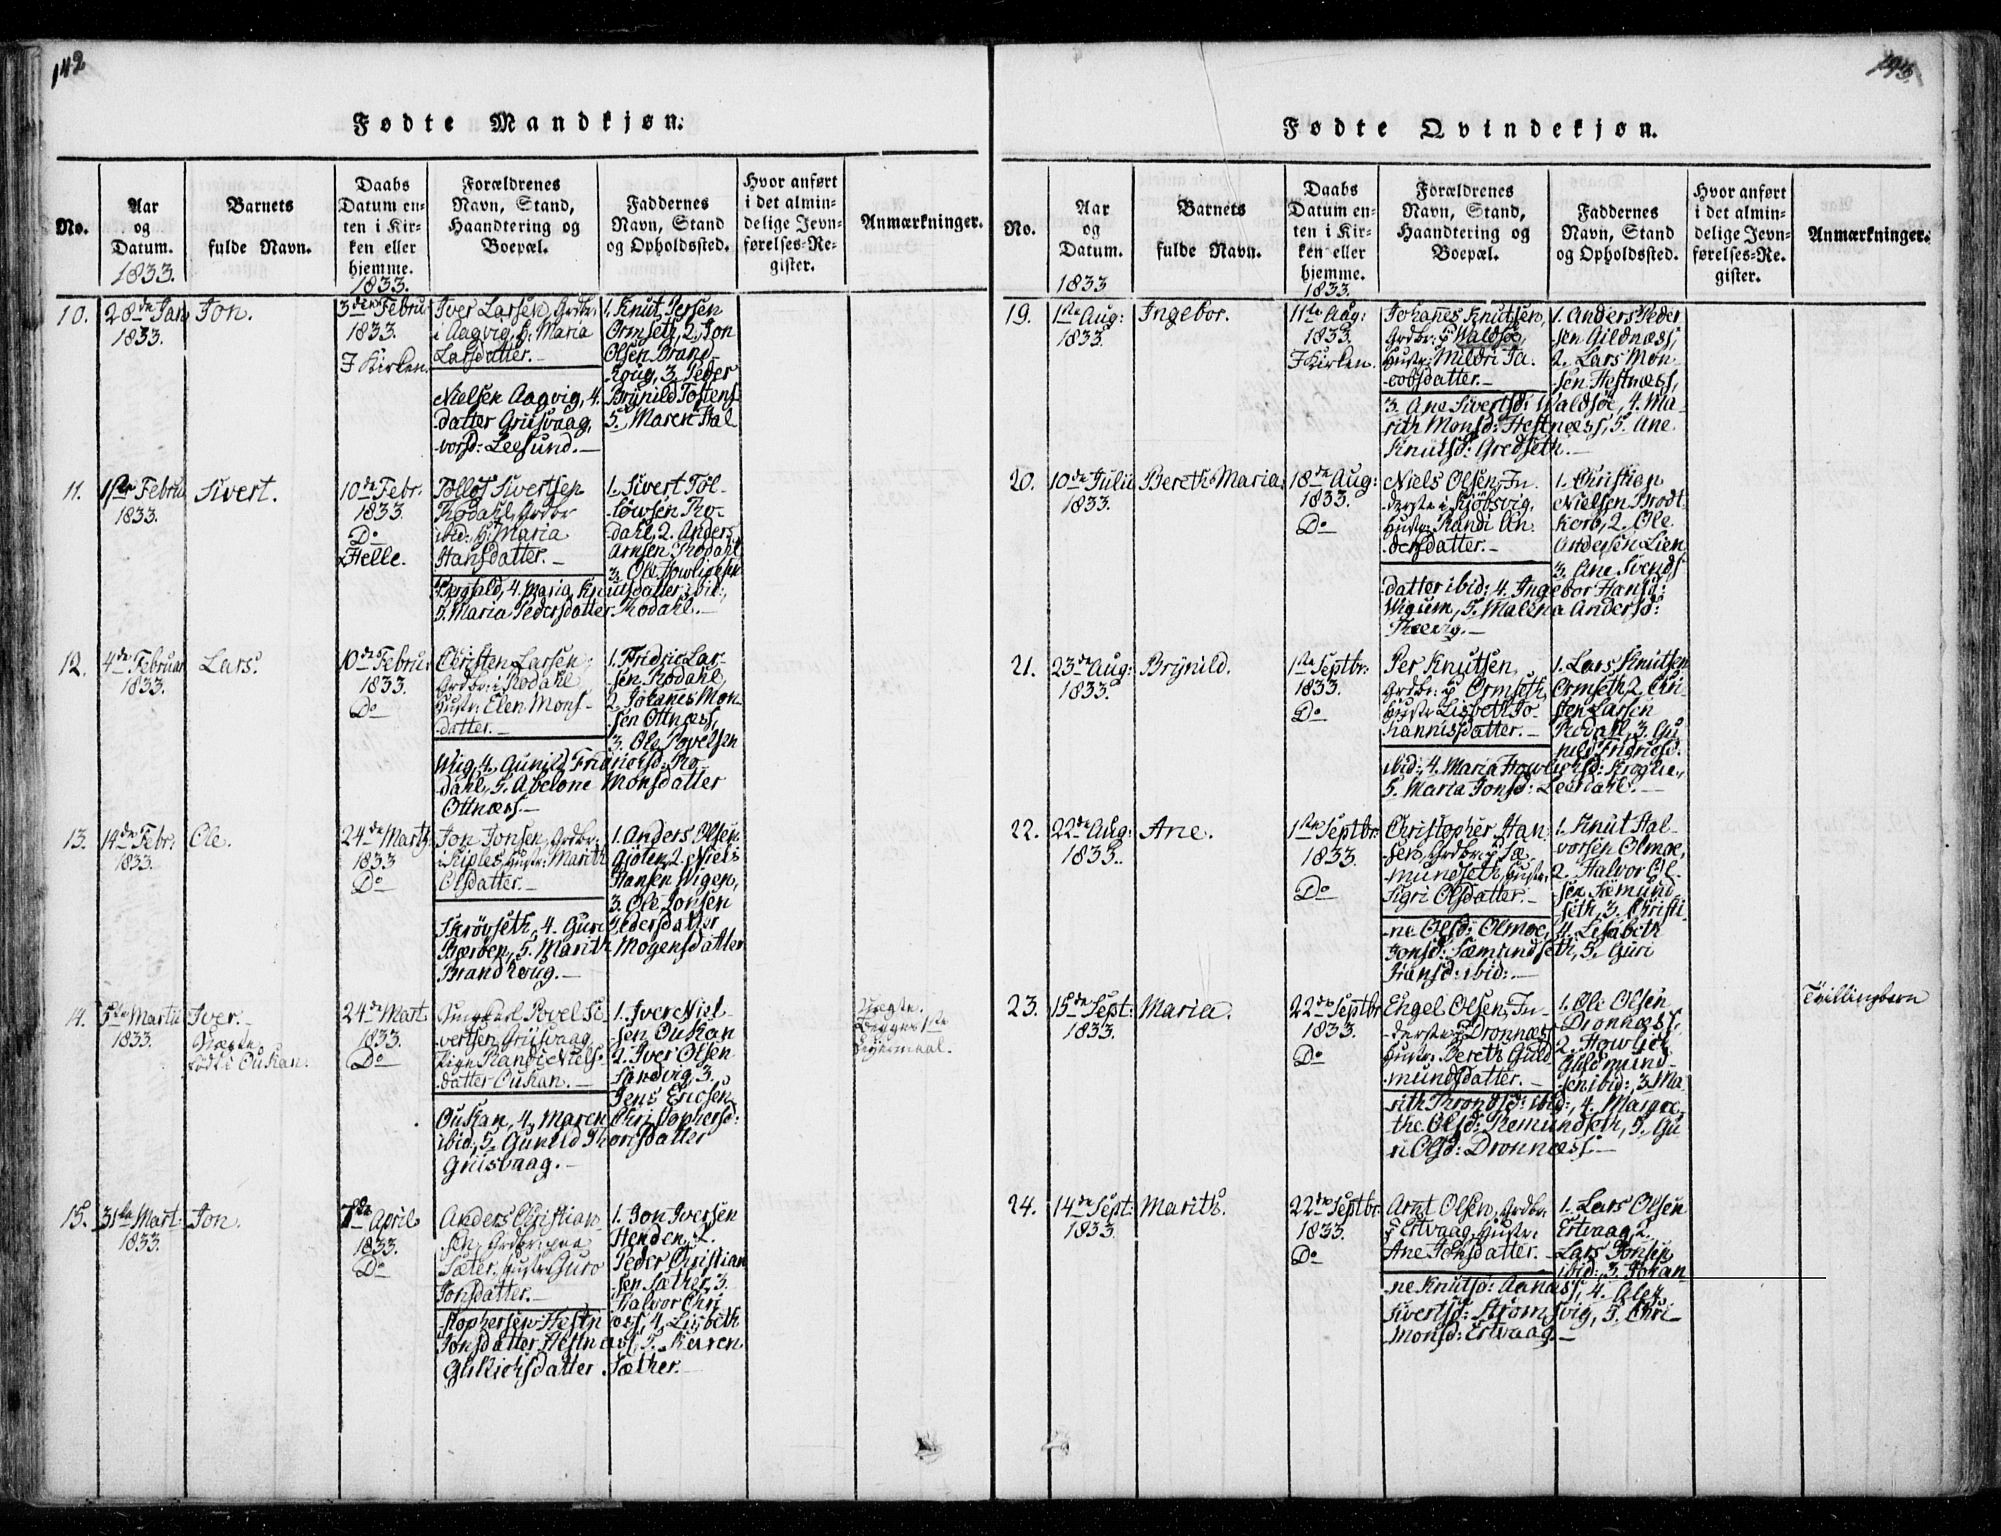 142
Fødte Mandkjøn.
No.
Aar
og
Datum.
1833.
Barnets
fulde Navn.
Daabs
Datum en-
ten i Kir-
ken eller
hjemme.
1833.
Forældrenes
Navn, Stand,
Haandtering og
Boepæl.
Faddernes
Navn, Stand
og Opholdssted.
Hvor anført
i det almin-
delige Jevn-
førelses-Re-
gister.
Anmærkninger.
10.
28de Jan
1833.
Jon.
3die Febru:
1833.
I Kirken.
Iver Larsen, Grdbr:
i Aagvig, H: Maria
Larsdatter.-
1. Knut Persen
Ormseth, 2. Jon
Olsen Brand-
houg, 3. Peder
Nielsen Aagvig, 4. Brynild Tostens-
datter Griisvaag, 5. Maren Hal
vorsd: Leesund.-
11.
1ste Febru
1833.
Sivert.
10de Febr.
1833.
Do
Helle.
Tollof Sivertsen
Rodahl, Grdbr
ibid: H: Maria
Hansdatter.-
1. Sivert Tol-
lowsen Ro-
dahl, 2. Anders
Arnsen Rodahl
3. Ole Howlicksen
4. Maria Knutsdatter ibid:,
5. Maria Pedersdatter Rodahl.-
12.
4de Februar
1833.
Lars.
10de Febru:
1833.
Do
Christen Larsen,
Grdbr: i Rodahl
Hustr: Elen Mons-
datter.-
1. Fridric Lar-
sen Rodahl,
2. Johanes Mon-
sen Ottnæss,
3. Ole Povelsen
Wig, 4. Gunild Fridrichsd: Ro-
dahl, 5. Abelone Monsdatter
Ottnæss.-
13.
14de Febr:
1833.
Ole.
24de Marty
1833
Do
Jon Jonsen, Grdbr:
i Riples, Hustr: Marith
Olsdatter.-
1. Anders Olsen
Gjøten, 2. Niels
Hansen Wigen,
3. Ole Jonsen
Skrøvseth, 4. Guri Pedersdatter
Bæroen, 5. Marith Mogensdatter
Brandhoug.-
14.
5te Martii
1833.
Iver.-
Uægte
født i Oukan.
24de Mart
1833.
Do
Ungkarl Povel Si-
vertsen Griisvaag,
Pige Randi Niels-
datter Oukan.-
1. Iver Niel-
sen Oukan
2. Iver Olsen
Sandvig 3.
Jens Ericsen
Oukan, 4. Maren Christophersd:
ibid:, 5. Gunild Thoresdatter
Griisvaag.-
Uægte.
Begges 1ste
Leiermaal.
15.
31te Mart:
1833.
Jon.
7de April
1833.
Do
Anders Christian
sen, Grdbr: paa
Sæter, Hustr: Guro
Jonsdatter.-
1. Jon Iversen
Henden, 2.
Peder Christian
sen Sæther, 3.
Halvor Chri
stophersen Hestnæss, 4. Lisbeth
Jonsdatter Hestnæss, 5. Karen
Gulichsdatter Sæther.-
143.
Fødte Qvindekjøn.
No.
Aar
og
Datum.
1833
Barnets
fulde Navn.
Daabs
Datum en-
ten i Kir-
ken eller
hjemme.
1833.
Forældrenes
Navn, Stand,
Haandtering og
Boepæl.
Faddernes
Navn, Stand
og Opholdssted.
Hvor anført
i det almin-
delige Jevn-
førelses-Re-
gister.
Anmærkninger.
19.
1ste Aug:
1833.
Ingebor.
11te Aug:
1833.
I Kirken.
Johanes Knutsen,
Grdbr: p Waldsøe,
Hustr: Mildri Ja-
cobsdatter.-
1. Anders Peder
sen Gildnæss,
2. Lars Mon-
sen Hestnæss,
3. Ane Sivertsd: Waldsøe, 4. Ma-
rith Monsd: Hestnæss, 5. Ane
Knutsd: Gredseth.-
20.
10de Julii
1833.
Bereth Maria.
18de Aug:
1833.
Do
Niels Olsen, In-
derste i Kjøbsvig,
Hustr: Randi An-
dersdatter.-
1. Christian
Nielsen Brodt
korb, 2. Ole
Andersen Lien
3. Ane Svends-
datter ibid: 4. Ingebor Hansd:
Wigum, 5. Malena Andersd:
21.
23de Aug:
1833.
Brynild.
1ste Septbr:
1833.
Do
Per Knutsen,
Grdbr: p Ormseth,
Hustr Lisbeth Jo-
hannisdatter.-
1. Lars Knutsen
Ormseth 2. Chri-
sten Larsen
Rodahl, 3. Gu
nild Fridricsd:
ibid:, 4. Maria Howlichsd: Kroglie,
5. Maria Jonsd: Leerdahl.-
22.
22de Aug:
1833.
Ane.
1ste Septbr
1833.
Do
Christopher Han
sen, Grdbr: p Sæ-
mundseth, Hustr:
Sigri Olsdatter.-
1. Knut Hal-
vorsen Olmoe,
2. Halvor Ol-
sen Sæmund-
seth, 3. Christi-
ne Olsd: Olmoe, 4. Lisabeth
Jonsd: Sæmundseth, 5. Guri
Fransd: ibid:-
23.
15de Sept:
1833.
Maria.
22de Septbr
1833.
Do
Engel Olsen, In-
derste p Dronnæss
Hustr: Bereth Guld
mundsdatter.-
1. Ole Olsen
Dronnæss,
2. Howlick
Guldmund-
sen ibid:, 3. Ma
rith Thronds d: ibid:, 4. Margre-
the Olsd: Remundseth, 5. Gu
ri Olsd: Dronnæss.-
Tvillingbørn
24.
14de Sept:
1833.
Marith.
22de Septbr
1833.
Do
Arnt Olsen, Grdbr:
i Ertvaag, Hustr:
Ane Jonsdatter.-
1. Lars Olsen
Ertvaag, 2.
Lars Jonsen
ibid: 3. Johan-
ne Knutsd: Aanæss, 4. Alex
Sivertsd: Strømsvig, 5. Chri-
Monsd: Ertvaag.-